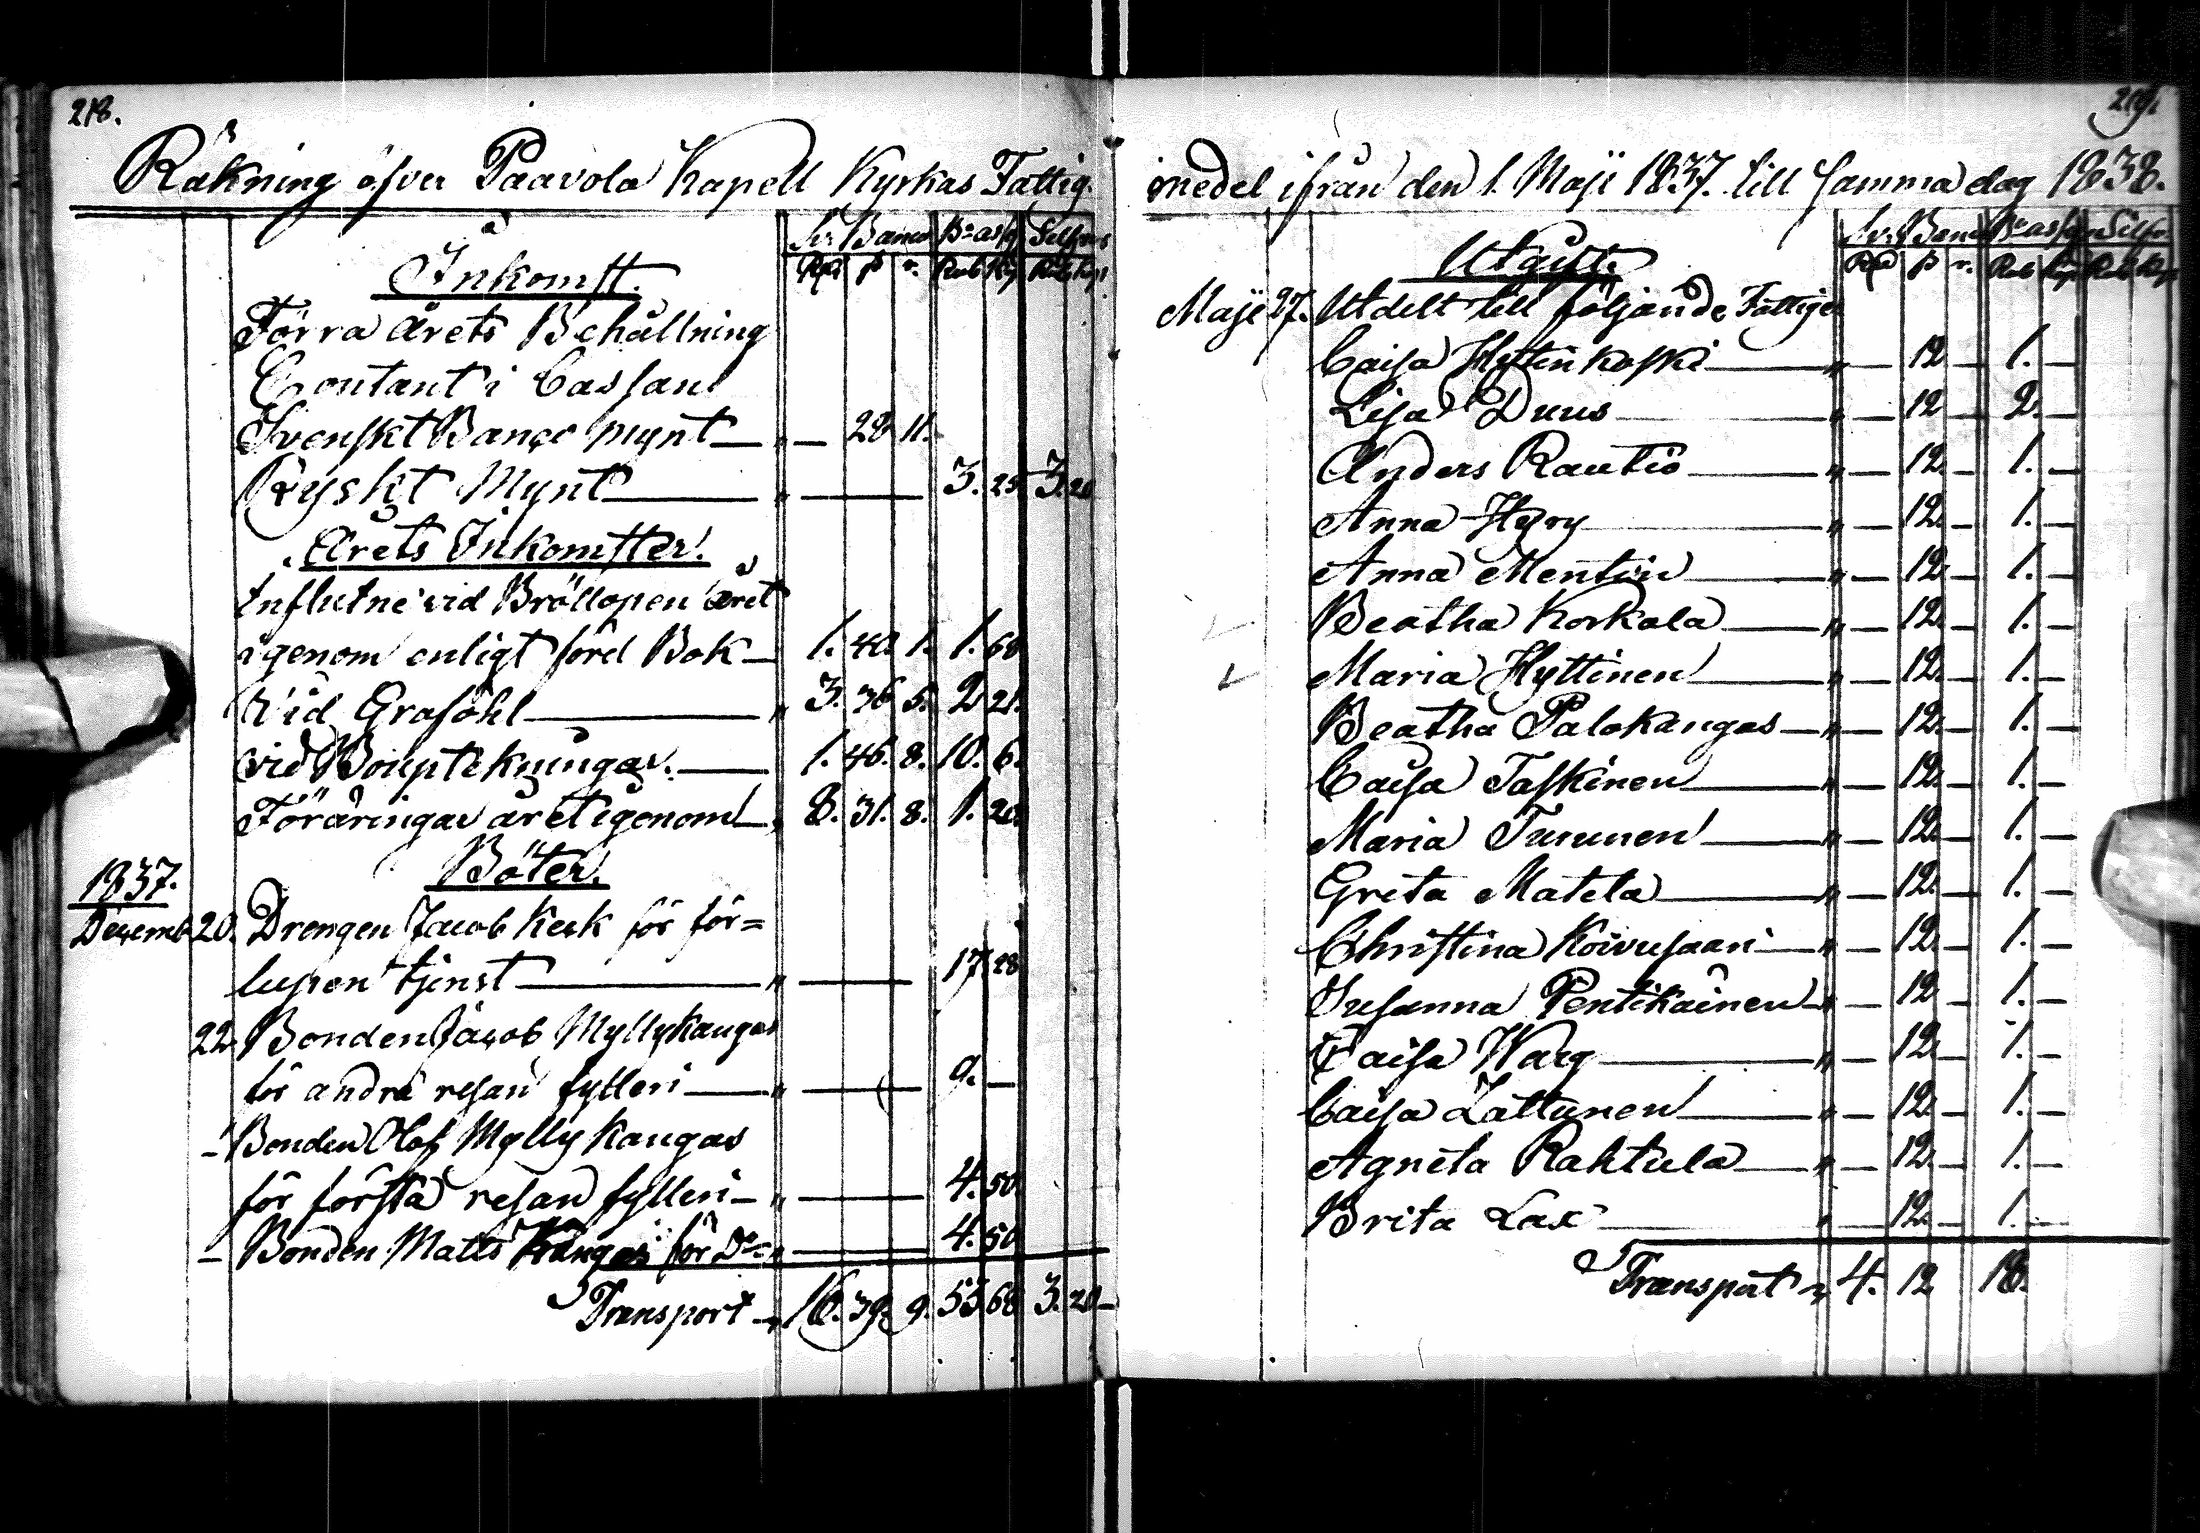 218.
Räkning öfver Paavola Kapell Kyrkas Fattig-
Sv. Banco B:o ass Silfver
Rd ß r. Rub Kop Rub Kop
Inkomst.
Förra årets Behållning
Contant i Cassan
Svenskt Banco mynt — " — 28 11.
Ryskt Mynt — " — 3. 25 3. 20
Årets Inkomster.
Influtne vid Bröllopen året
igenom enligt förd Bok — 1. 40. 1. 1. 60
Vid Grafööhl — " 3. 36 5. 2 21.
vid Bouptekningar. — 1. 46. 8. 10. 6.
Föräringar året igenom — " 8. 31. 8. 1. 20
Böter.
1837.
Decemb. 20. Drengen Jacob Keck för för=
lupen tjenst — " — 17. 28
22. Bonden Jacob Myllykangas
för andra resan fylleri — " — 9. —
– Bonden Olof Myllykangas
för första resan fylleri — " — 4. 50
– Bonden Matts Kangas för D:o — " — 4. 50
Transport — " 16. 39. 9. 53 68 3. 20 —
219.
medel ifrån den 1. Maji 1837. till samma dag 1838.
Sv. Banco B:o ass Silfv
Rd ß r. Rub Kop Rub Kop
Utgift.
Maji 27. Utdelt till följande Fattige
Caisa Hyttinkoski — " — 12 — 1. —
Lisa Duus — " — 12 — 2. —
Anders Rautio — " — 12. — 1. —
Anna Hyry — " — 12. — 1. —
Anna Mentvin — " — 12 — 1. —
Beatha Korkala — " — 12. — 1. —
Maria Hyttinen — " — 12. — 1. —
Beatha Palokangas — " — 12. — 1. —
Caisa Taskinen — " — 12. — 1. —
Maria Turunen — " — 12. — 1. —
Greta Matela — " — 12. — 1. —
Christina Koivusaari — " — 12. — 1. —
Susanna Pentikäinen — " — 12 — 1. —
Caisa Warg — " — 12. — 1. —
Caisa Lattunen — " — 12. — 1. —
Agneta Rahtula — " — 12. — 1. —
Brita Lax — " — 12. — 1. —
Transport " 4. 12 18.